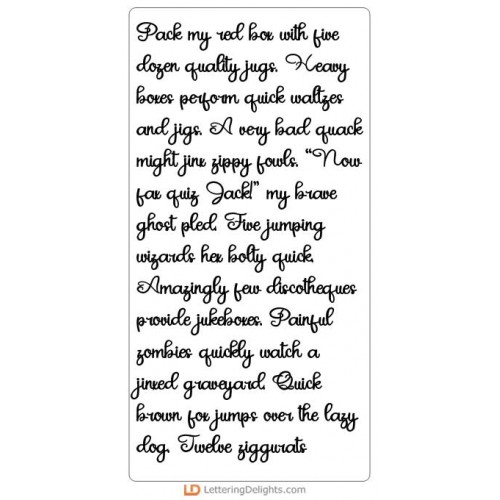 Pack my red box with five
dozen quality jugs. Heavy
boxes perform quick waltzes
and jigs. A very bad quack
might jinx zippy fowls. “Now
fax quiz Jack!” my brave
ghost pled. Five jumping
wizards hex bolty quick.
Amazingly few discotheques
provide jukeboxes. Painful
zombies quickly watch a
jinxed graveyard. Quick
brown fox jumps over the lazy
dog. Twelve ziggurats
LD LetteringDelights.com